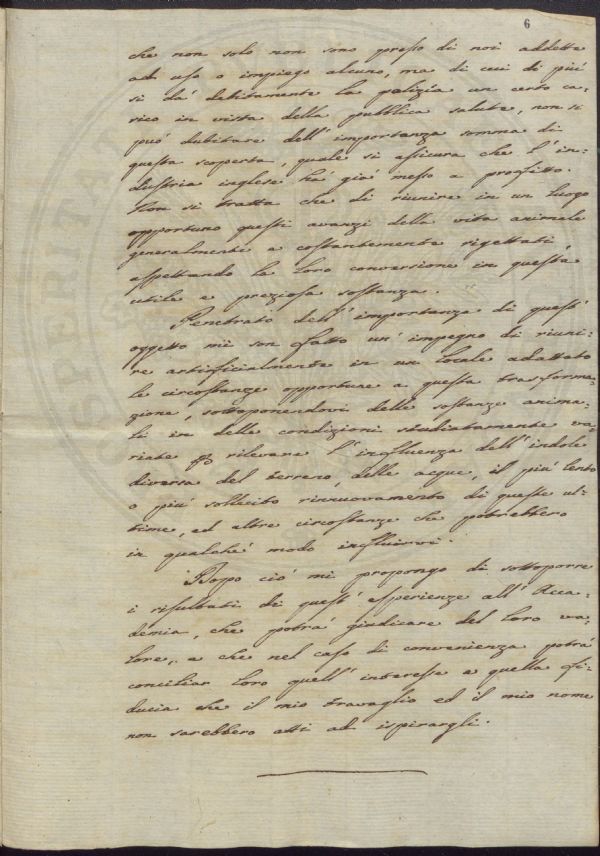 6
che non solo non sono presso di noi addette
ad uso o impiego alcuno, ma di cui di più
si dà debitamente la polizia un certo ca-
rico in vista della pubblica salute, non si
può dubitare dell'importanza somma di
questa scoperta, quale si assicura che l'in-
dustria inglese ha già messo a profitto.
Non si tratta che di riunire in un luogo
opportuno questi avanzi della vita animale
generalmente e costantemente rigettati,
aspettando la loro conversione in questa
utile e preziosa sostanza.
Penetrato dell'importanza di quest'
oggetto mi son fatto un'impegno di riuni-
re artificialmente in un locale adattato
le circostanze opportune a questa trasforma-
zione, sottoponendovi delle sostanze anima-
li in delle condizioni studiatamente va-
riate per rilevare l'influenza dell'indole
diversa del terreno, delle acque, il più lento
o più sollecito rinnuovamento di queste ul-
time, ed altre circostanze che potrebbero
in qualche modo influirvi.
Dopo ciò mi propongo di sottoporre
i risultati di quest'esperienze all'Acca-
demia, che potrà giudicare del loro va-
lore, e che nel caso di convenienza potrà
conciliar loro quell'interesse e quella fi-
ducia che il mio travaglio ed il mio nome
non sarebbero atti ad ispirargli.